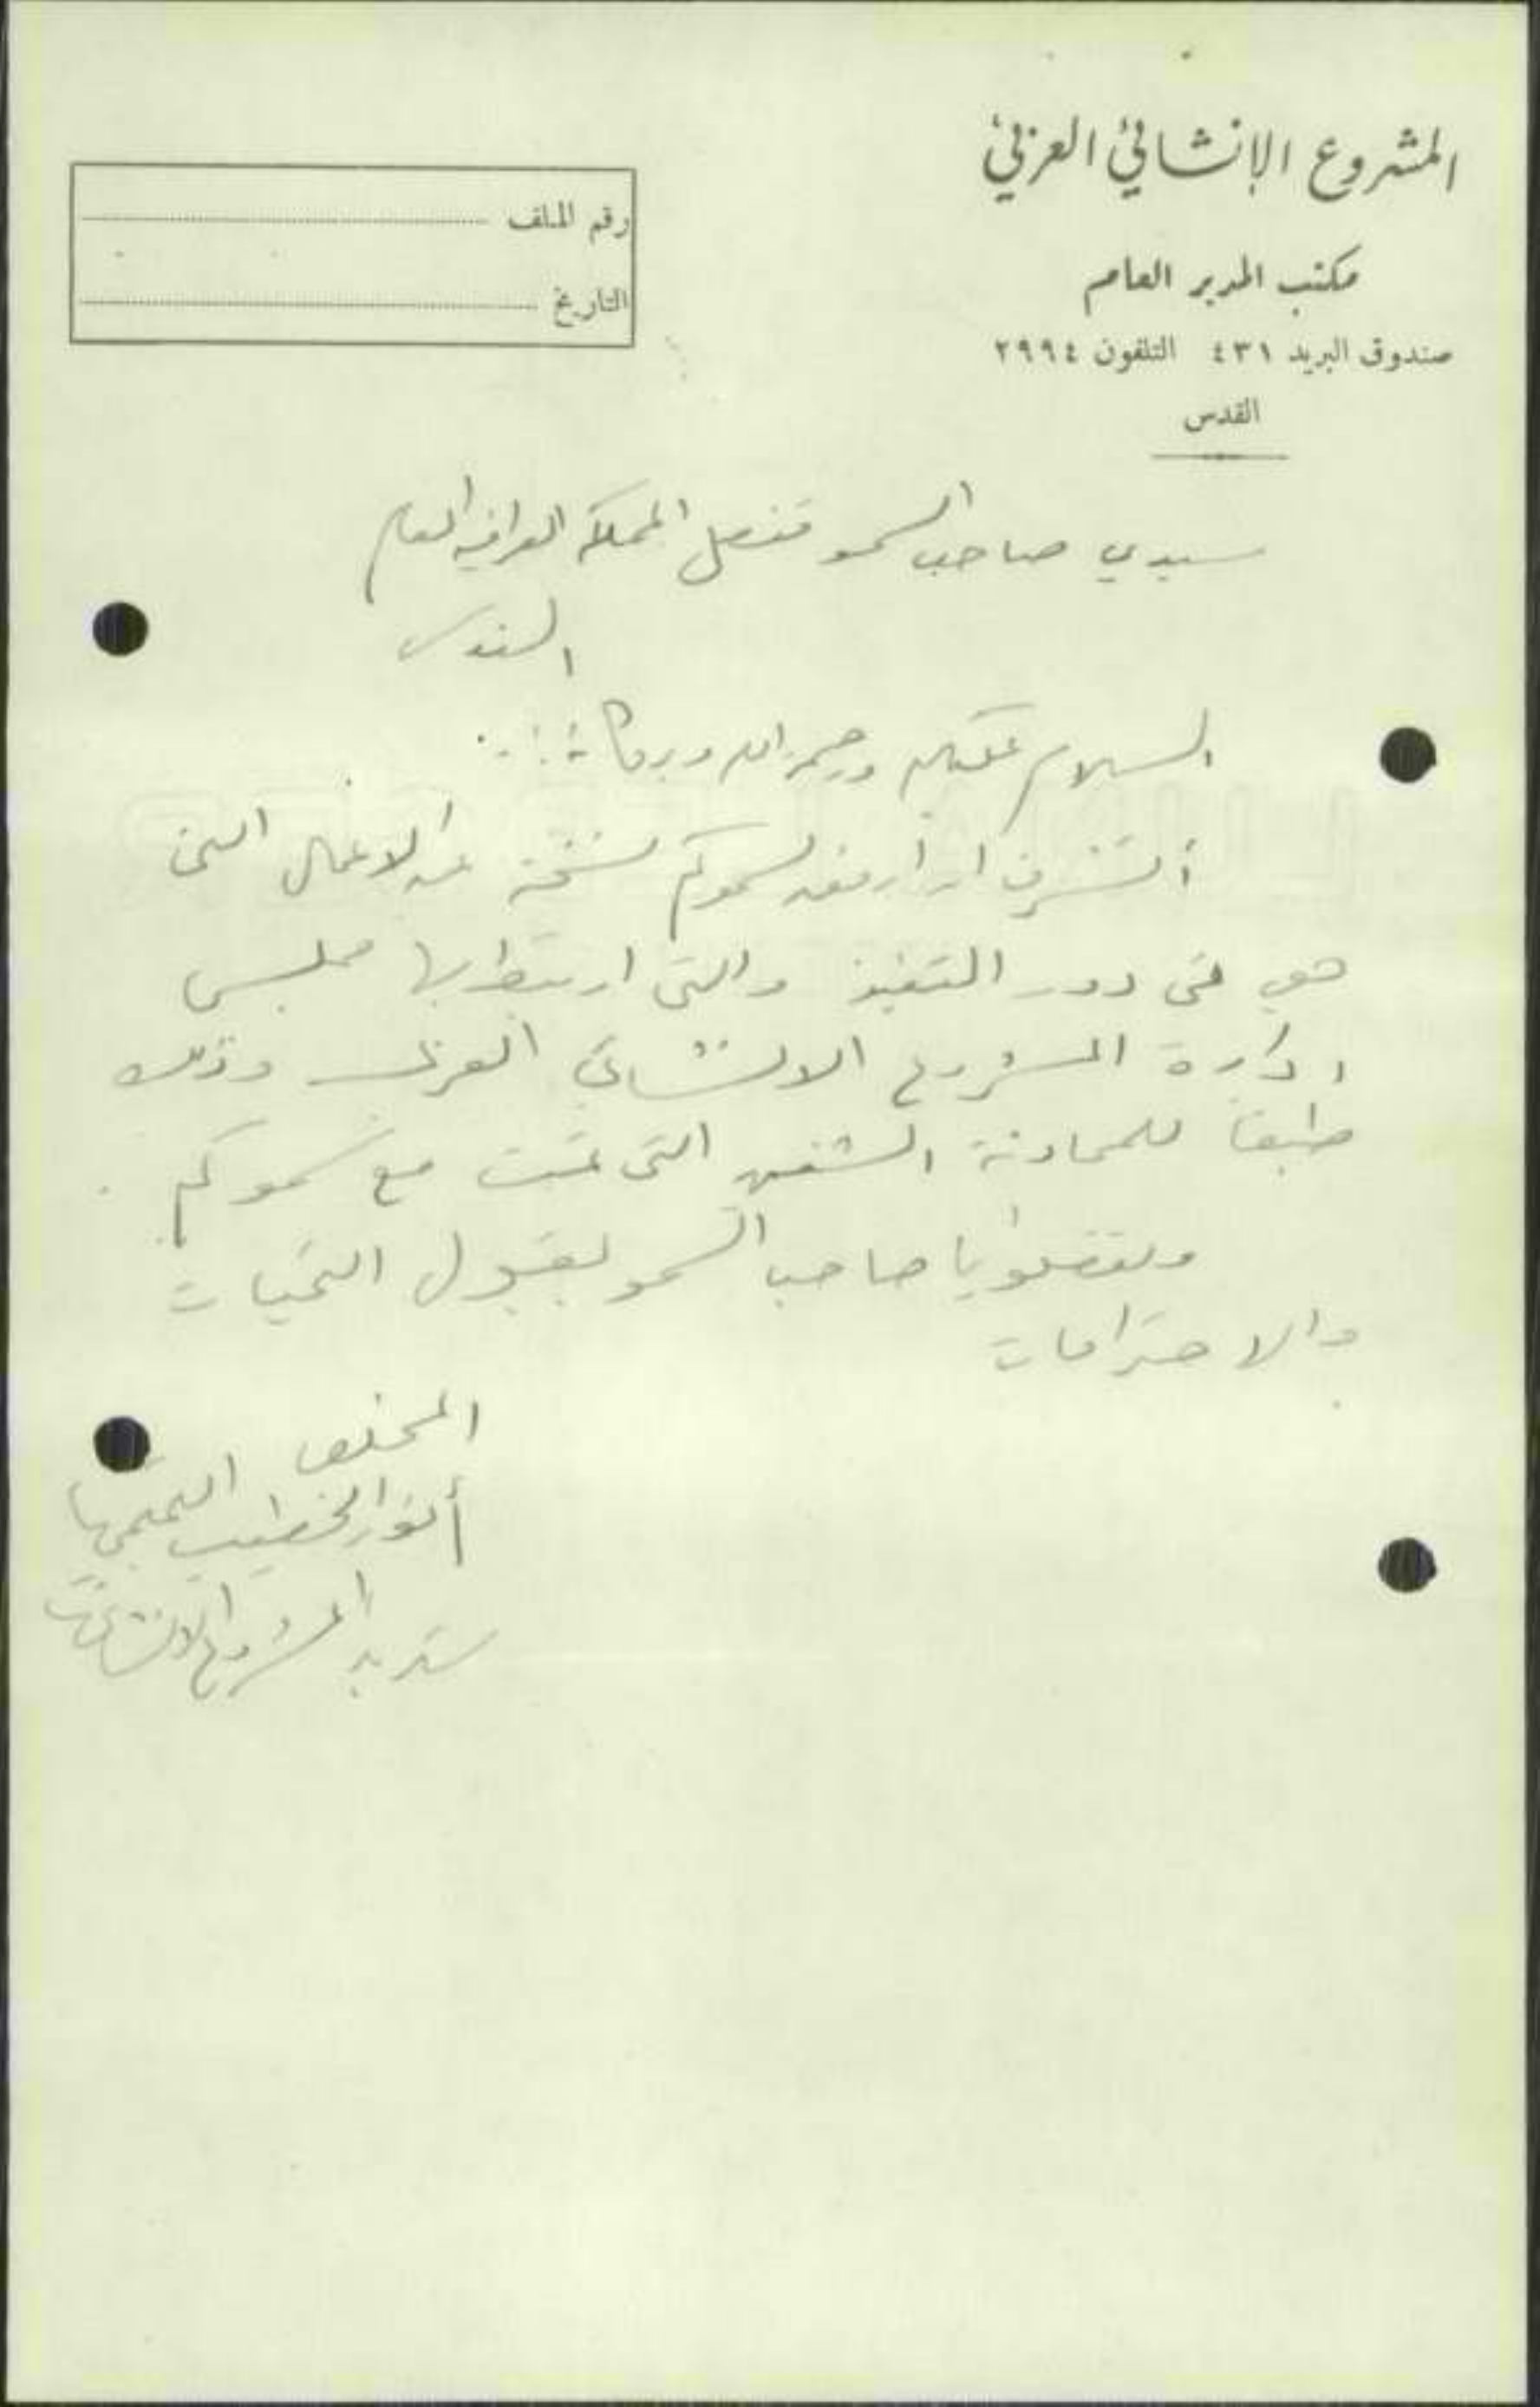 المشروع الإنشائي العربي
مكتب المدير العام
صندوق البريد ٤٣١ التلفون ٢٩٩٤
القدس
رقم الملف
التاريخ
سيدي صاحب السمو قنصل المملكة العراقية العام
القدس
السلام عليكم ورحمة الله وبركاته
أتشرف ان ارفق لسموكم نسخة عن الاعمال التي
هي في دور التنفيذ والتي ارتبط بها مجلس
ادارة المشروع الانشائي العربي وذلك
طبقا للمحادثة الشفهية التي تمت مع سموكم .
وتفضلوا يا صاحب السمو بقبول التحيات
والاحترامات
المخلص
أنور الخطيب التميمي
المشروع الانشائي